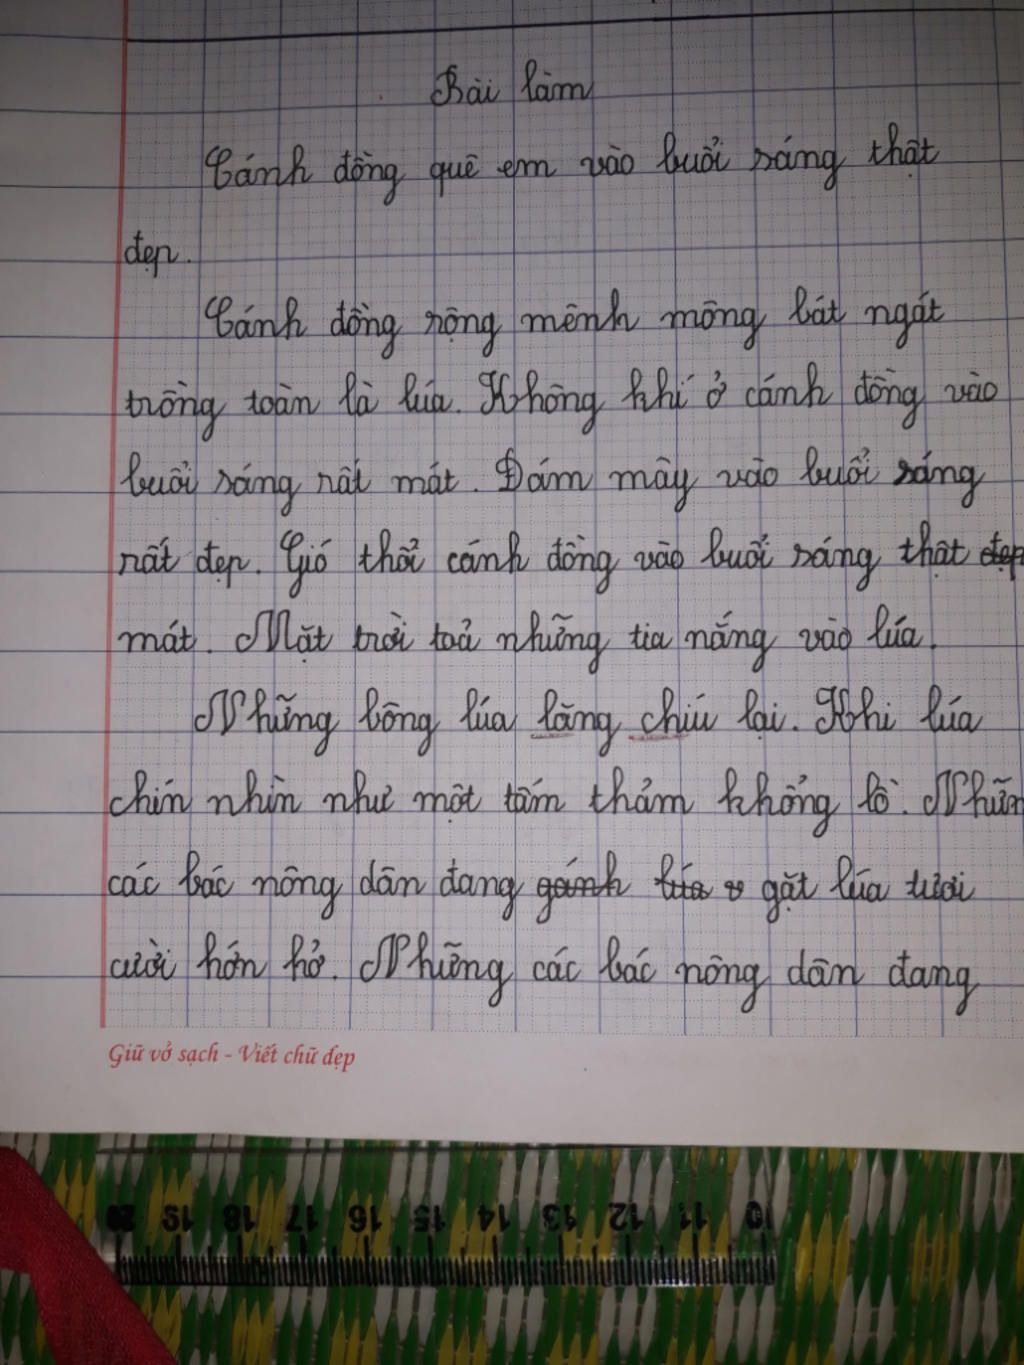 Bài làm
Cánh đồng quê em vào buổi sáng thật
đẹp.
Cánh đồng rộng mênh mông bát ngát
trồng toàn là lúa. Không khí ở cánh đồng vào
buổi sáng rất mát. Đám mây vào buổi sáng
rất đẹp. Gió thổi cánh đồng vào buổi sáng thật đẹp
mát. Mặt trời toả những tia nắng vào lúa.
Những bông lúa lăng chiú lại. Khi lúa
chín nhìn như một tấm thảm khổng lồ. Nhữn
các bác nông dân đang gánh lúa v gặt lúa tươi
cười hớn hở. Những các bác nông dân đang
Giữ vở sạch - Viết chữ đẹp
20 19 18 17 16 15 14 13 12 11 10